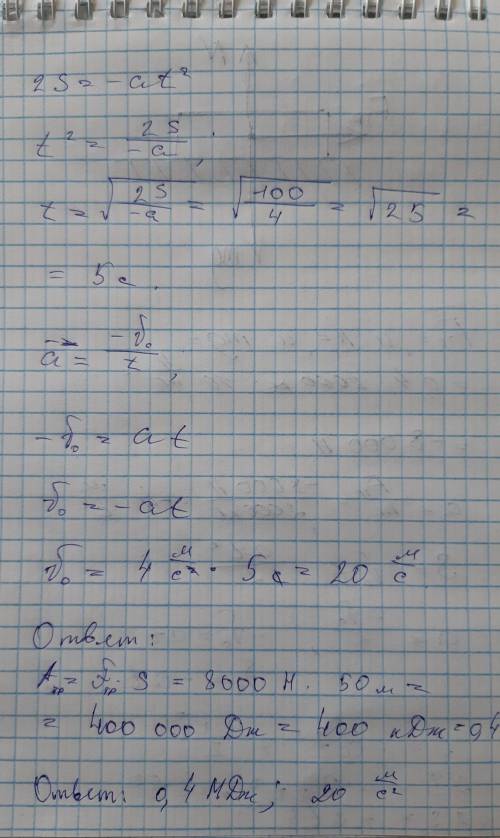 2S = -at²
t² = 2S/-a ;
t = √(2S/-a) = √(100/4) = √25 =
= 5 с.
a⃗ = -v₀/t ;
-v₀ = at
v₀ = -at
v₀ = 4 м/с² · 5 с = 20 м/с
Ответ:
Aтр = Fтр · S = 8000 Н · 50 м =
= 400 000 Дж = 400 кДж = 0,4
Ответ: 0,4 МДж; 20 м/с²